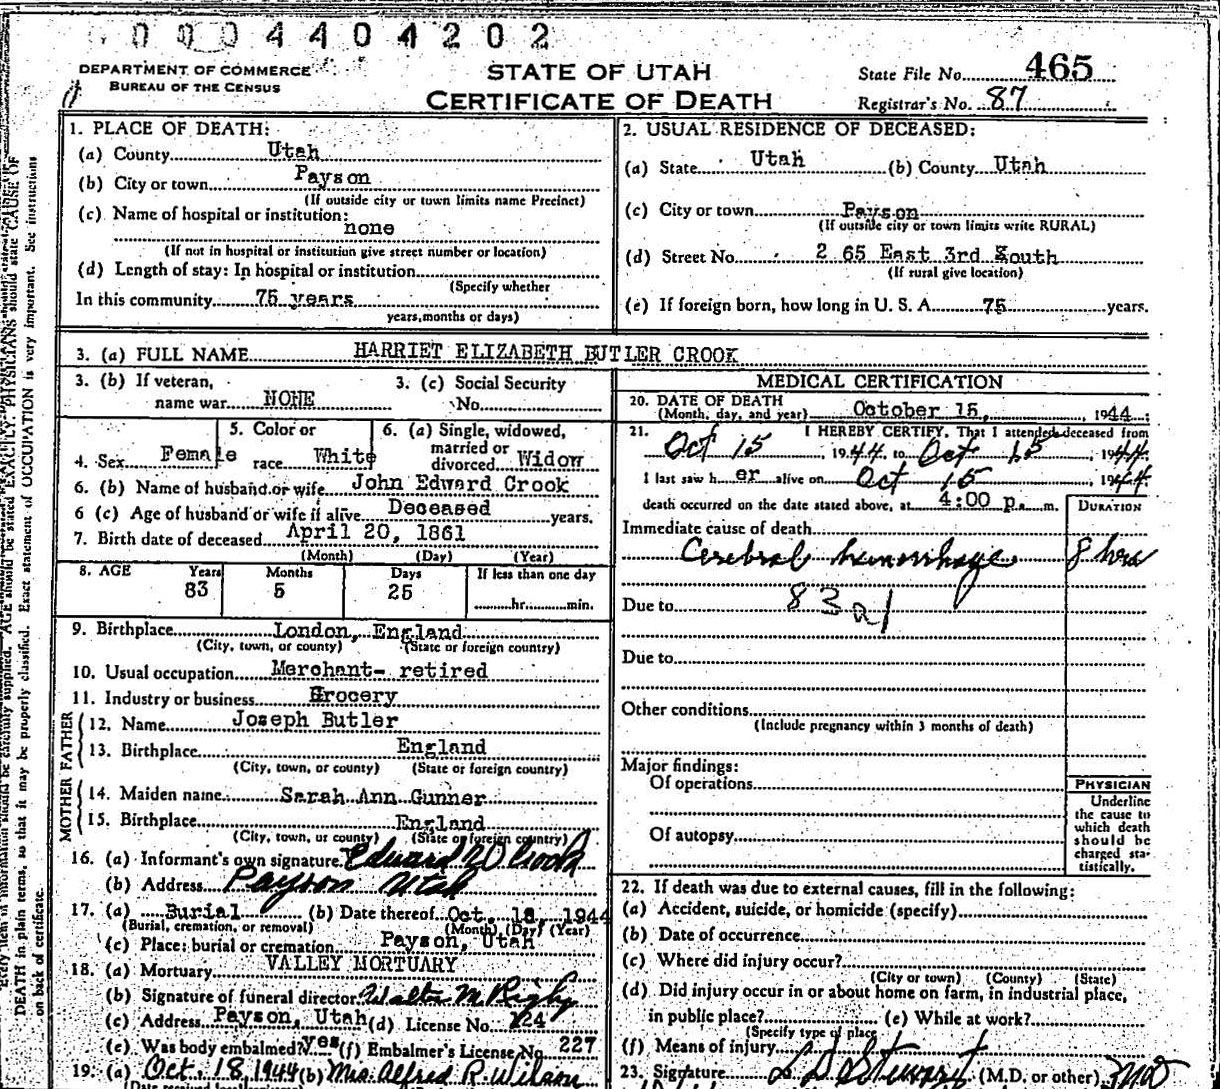 0004404202
DEPARTMENT OF COMMERCE
BUREAU OF THE CENSUS
STATE OF UTAH
CERTIFICATE OF DEATH
State File No. 465
Registrar's No. 87
1. PLACE OF DEATH:
(a) County Utah
(b) City or town Payson
(If outside city or town limits name Precinct)
(c) Name of hospital or institution:
none
(If not in hospital or institution give street number or location)
(d) Length of stay: In hospital or institution
(Specify whether
In this community 75 years
years, months or days)
2. USUAL RESIDENCE OF DECEASED:
(a) State Utah (b) County Utah
(c) City or town Payson
(If outside city or town limits write RURAL)
(d) Street No. 265 East 3rd South
(If rural give location)
(e) If foreign born, how long in U. S. A. 75 years.
3. (a) FULL NAME HARRIET ELIZABETH BUTLER CROOK
3. (b) If veteran, name war NONE
3. (c) Social Security No.
4. Sex Female
5. Color or race White
6. (a) Single, widowed, married or divorced Widow
6. (b) Name of husband or wife John Edward Crook
6 (c) Age of husband or wife if alive Deceased years.
7. Birth date of deceased April 20, 1861
(Month) (Day) (Year)
8. AGE Years Months Days If less than one day
83 5 25 hr. min.
9. Birthplace London, England
(City, town, or county) (State or foreign country)
10. Usual occupation Merchant- retired
11. Industry or business Grocery
FATHER
12. Name Joseph Butler
13. Birthplace England
(City, town, or county) (State or foreign country)
MOTHER
14. Maiden name Sarah Ann Gunner
15. Birthplace England
(City, town, or county) (State or foreign country)
16. (a) Informant's own signature Edward W Crook
(b) Address Payson Utah
17. (a) Burial (b) Date thereof Oct. 18, 1944
(Burial, cremation, or removal) (Month) (Day) (Year)
(c) Place: burial or cremation Payson, Utah
18. (a) Mortuary VALLEY MORTUARY
(b) Signature of funeral director Walter M Rigby
(c) Address Payson, Utah (d) License No. 124
(e) Was body embalmed? yes (f) Embalmer's License No. 227
19. (a) Oct. 18 1944 (b) Mrs. Alfred R. Wilson
MEDICAL CERTIFICATION
20. DATE OF DEATH
(Month, day, and year) October 15, 1944
21. I HEREBY CERTIFY, That I attended deceased from
Oct 15, 1944, to Oct 15, 1944
I last saw her alive on Oct 15, 1944
death occurred on the date stated above, at 4:00 p. m.
DURATION
Immediate cause of death
Cerebral hemorrhage 8 hrs
Due to 83a1
Due to
Other conditions
(Include pregnancy within 3 months of death)
Major findings:
Of operations
Of autopsy
PHYSICIAN
Underline
the cause to
which death
should be
charged sta-
tistically.
22. If death was due to external causes, fill in the following:
(a) Accident, suicide, or homicide (specify)
(b) Date of occurrence
(c) Where did injury occur?
(City or town) (County) (State)
(d) Did injury occur in or about home on farm, in industrial place,
in public place? (e) While at work?
(Specify type of place
(f) Means of injury
23. Signature L D Stewart (M.D. or other) MD
PHYSICIANS should state CAUSE OF
DEATH in plain terms, so that it may be properly classified. Exact statement of OCCUPATION is very important. See instructions
on back of certificate.